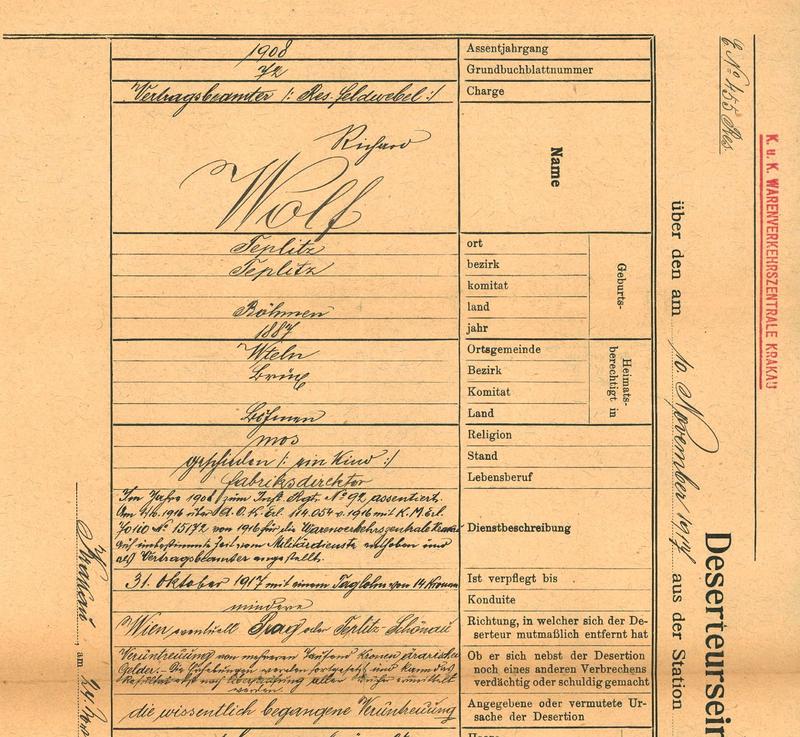 K. u. K. WARENVERKEHRSZENTRALE KRAKAU
E. No 455 Res.
Deserteursein
über den am 10. November 1917 aus der Station
1908 Assentjahrgang
72 Grundbuchblattnummer
Vertragsbeamter /: Res. Feldwebel :/ Charge
Richard
Wolf
Name
Geburts-
Teplitz ort
Teplitz bezirk
komitat
Böhmen land
1887 jahr
Heimats-
berechtigt in
Wteln Ortsgemeinde
Brüx Bezirk
Komitat
Böhmen Land
mos Religion
geschieden /: ein Kind :/ Stand
Fabriksdirektor Lebensberuf
Dienstbeschreibung
Im Jahre 1908 zum Inft. Rgt. No 92 assentiert.
Am 4/6 1916 über d. O. K. Erl. 114.054 v. 1916 mit K. M. Erl.
No 15172 von 1916 für die Warenverkehrszentrale
auf unbestimmte Zeit vom Militärdienste enthoben und
als Vertragsbeamter angestellt.
31. Oktober 1917 mit einem Taglohn von 14 Kronen Ist verpflegt bis
mindere Konduite
Wien eventuell Prag oder Teplitz-Schönau
Richtung, in welcher sich der De-
serteur mutmaßlich entfernt hat
Veruntreuung von mehreren Tausend Kronen ärarischer
Gelder. Die Erhebungen werden fortgesetzt und kann das
Resultat erst nach aller Bücher ermittelt
werden.
Ob er sich nebst der Desertion
noch eines anderen Verbrechens
verdächtig oder schuldig gemacht
die wissentlich begangene Veruntreuung
Angegebene oder vermutete Ur-
sache der Desertion
Haare
Krakau, am 24.